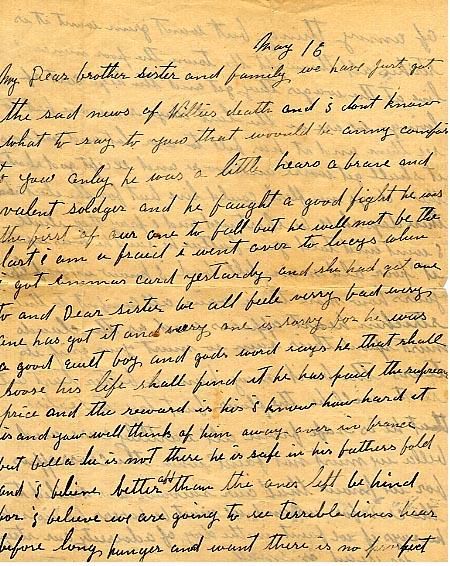 May 16
My Dear brother sister and family we have just got
the sad news of Willies death and i dont know
what to say to yow that woould be anny comfor
t yow anley he was a little hearo a brave and
valent soldger and he faught a good fight he was
the first of our one to fall but he will not be the
last i am a fraid i went over to lucys when
i got emmas card yestardy and she had got one
to and Dear sister we all feele verry bad every
one has got it and every one is sorry for he was
a good quit boy and gods word says he that shall
loose his life shall find it he has paid the supream
price and the reward is his i know how hard it
is and yaw will think of him away over in france
but bella he is not there he is safe in his fathers fold
and i believe better off than the ones left be hind
for i believe we are going to see terrible times hear
before long hunger and want there is no prospect